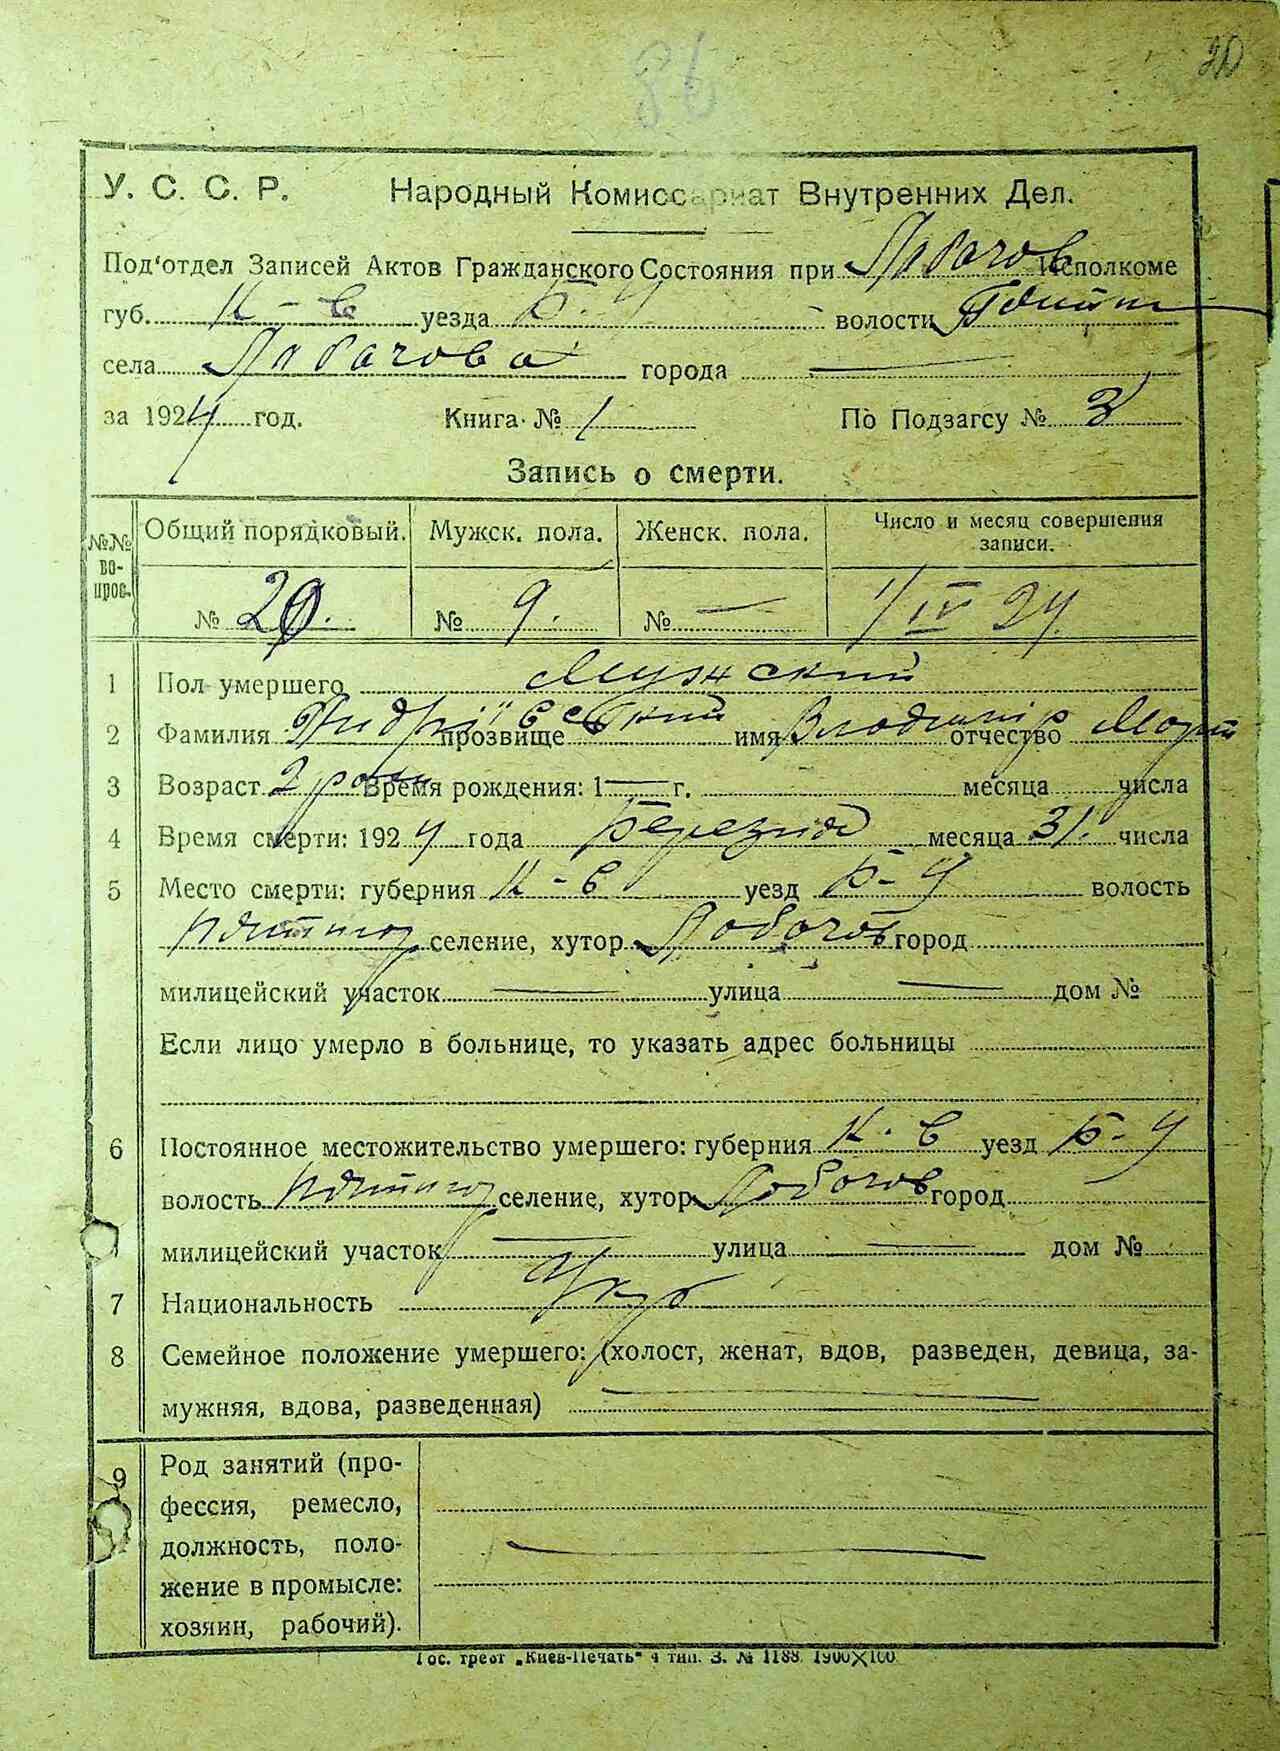 86
20
У. С. С. Р. Народный Комиссариат Внутренних Дел.
Под'отдел Записей Актов Гражданского Состояния при Лобачов Исполкоме
губ. К-в уезда Б-Ц волости
села Лобачова города —
за 1924 год. Книга № 1 По Подзагсу № 3
Запись о смерти.
№№ во- прос. Общий порядковый. Мужск. пола. Женск. пола. Число и месяц совершения записи.
№ 20. № 9. № — 1/IV 24.
1 Пол умершего Мужский
2 Фамилия прозвище имя Владимір отчество
3 Возраст 2 роки Время рождения: 1— г. месяца числа
4 Время смерти: 1924 года Березня месяца 31. числа
5 Место смерти: губерния К-в уезд Б-Ц волость
селение, хутор Лобачов город
милицейский участок — улица — дом №
Если лицо умерло в больнице, то указать адрес больницы
6 Постоянное местожительство умершего: губерния К-в уезд Б-Ц
волость селение, хутор Лобачов город
милицейский участок — улица — дом №
7 Национальность Укр
8 Семейное положение умершего: (холост, женат, вдов, разведен, девица, за-
мужняя, вдова, разведенная) —
9 Род занятий (про-
фессия, ремесло,
должность, поло- —
жение в промысле:
хозяин, рабочий).
Гос. трест „Киев-Печать" 4 тип. З. № 1188 1900×100